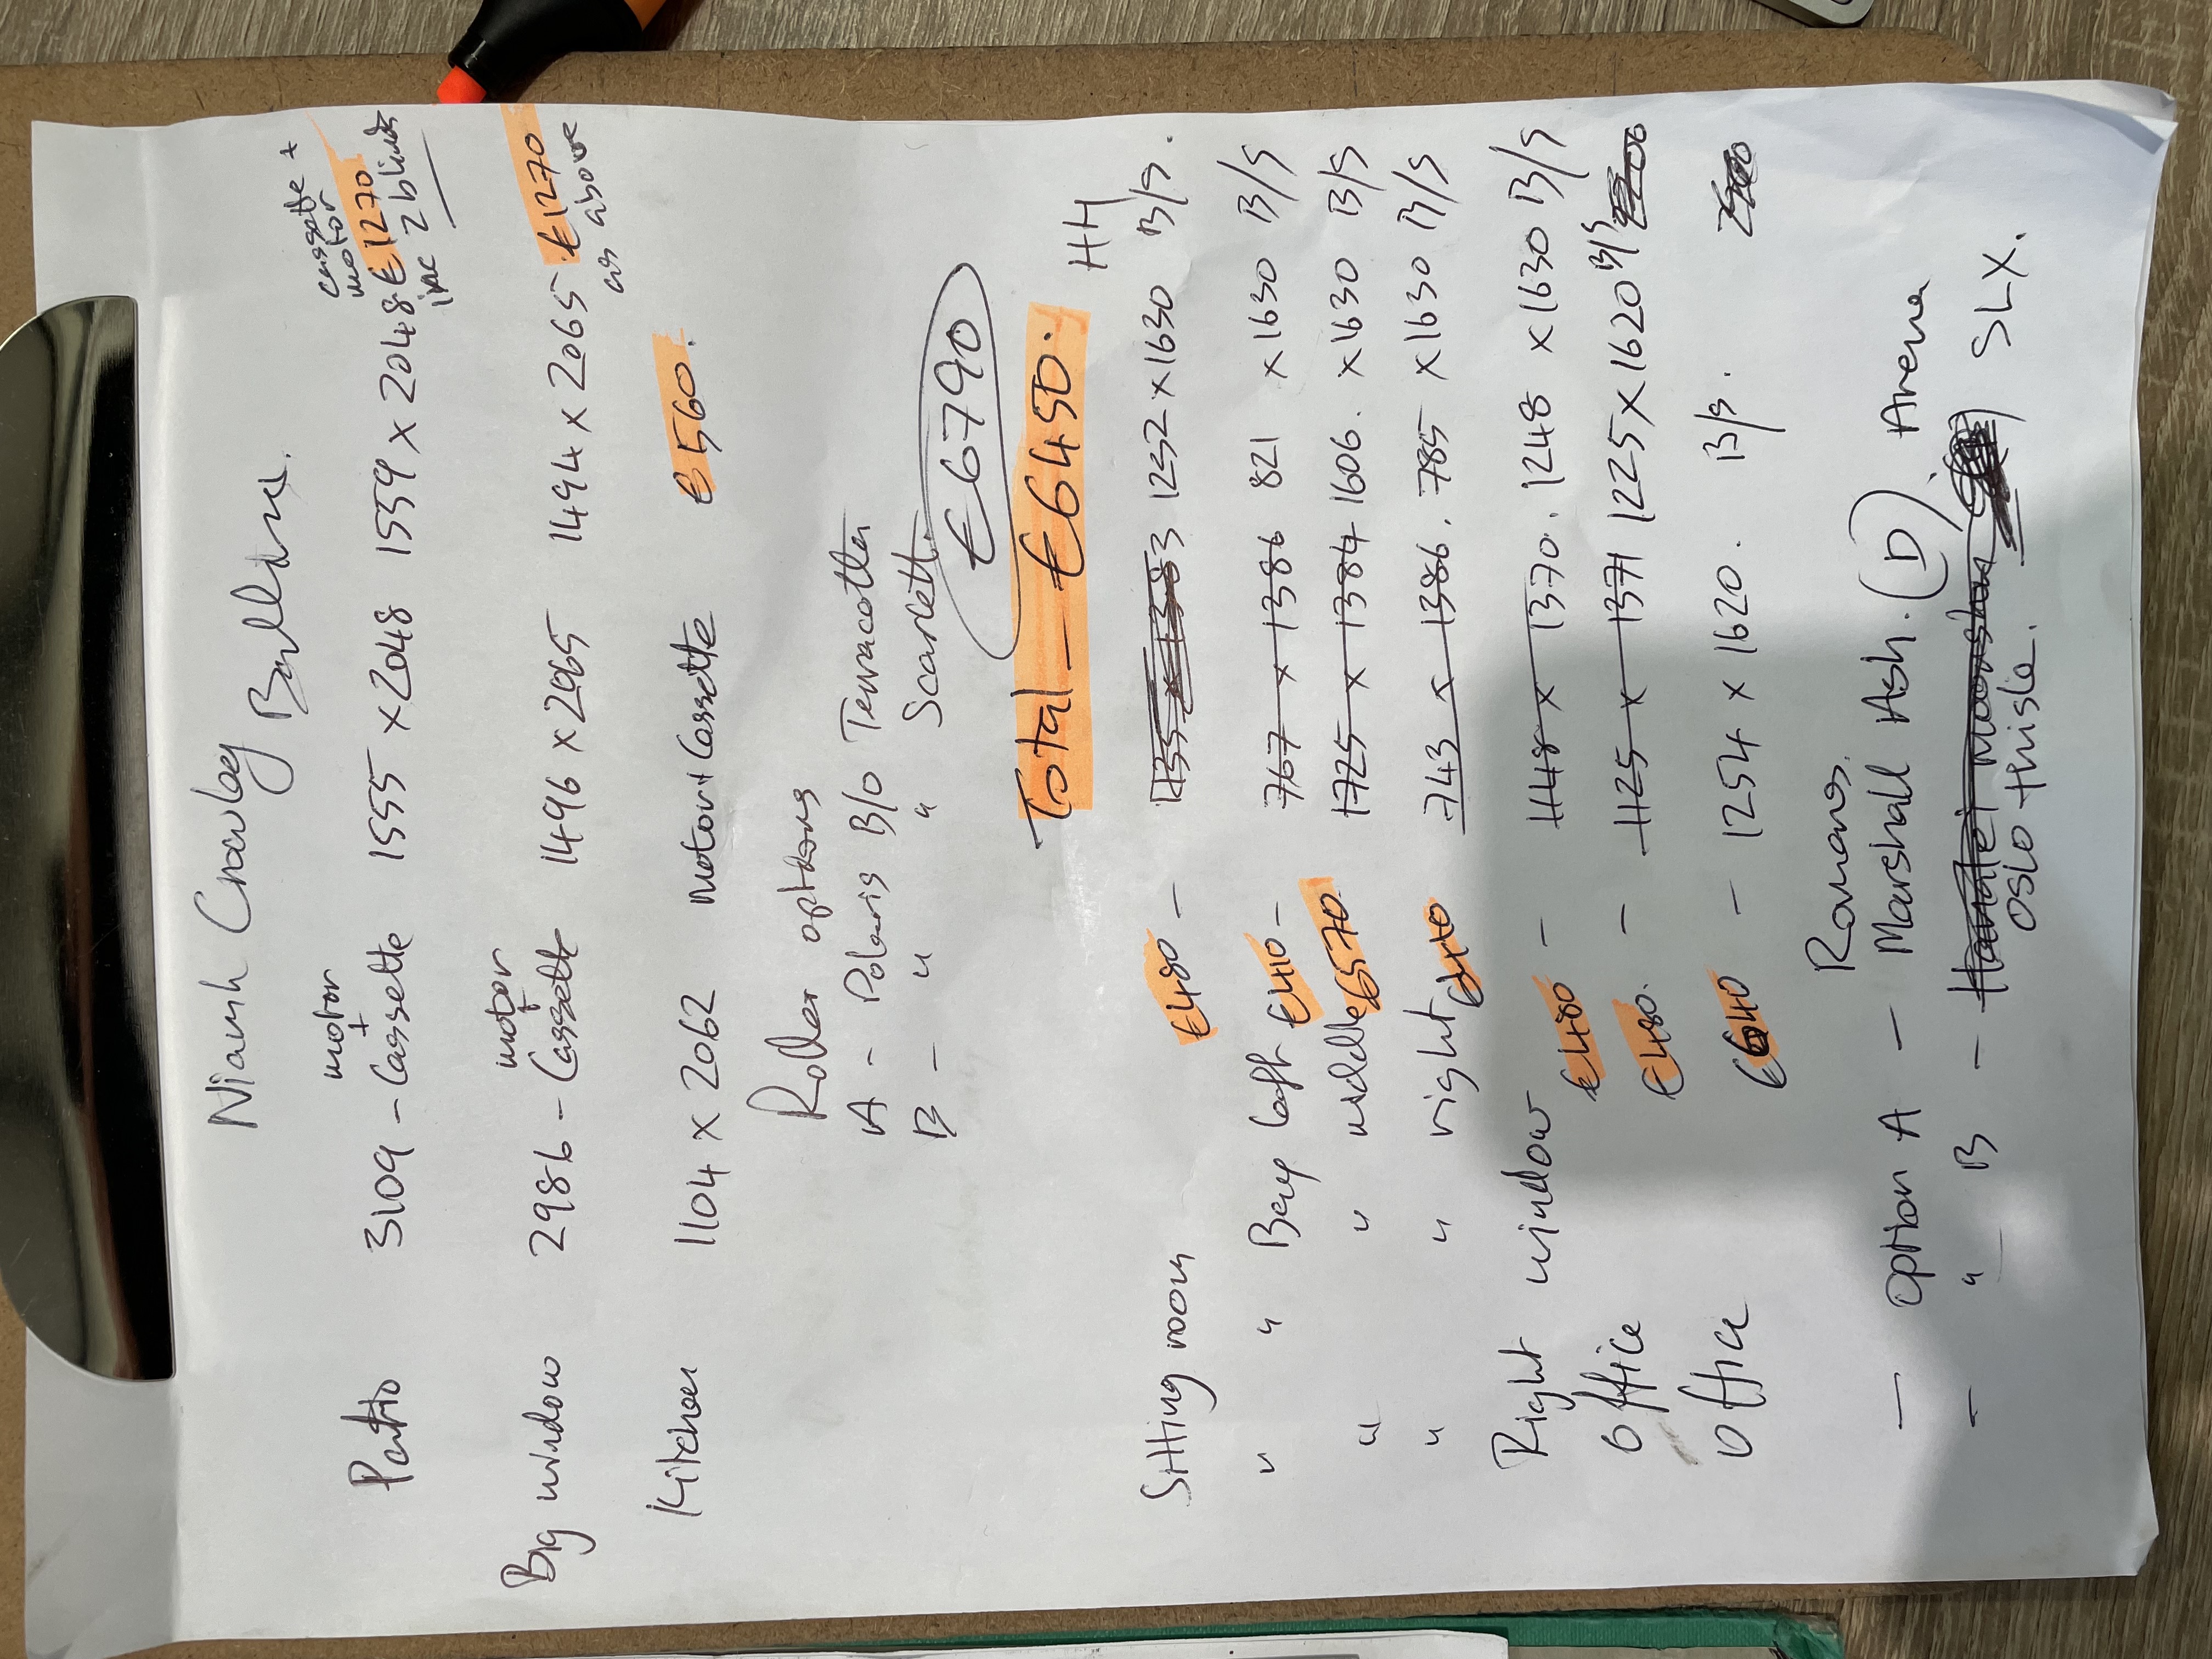 Niamh Crowley
cassette +
motor
motor
+
Patio 3109 - Cassette 1555 x 2048 1559 x 2048 €1270.
inc 2 blinds
motor
+
Big window 2986 - Cassette 1496 x 2065 1494 x 2065 €1270
as above
Kitchen 1104 x 2062 Motor + Cassette €560.
Roller options
A - Polaris B/O Terracotta
B - " " Scarlett.
€6790
Total - €6450.
HH
Sitting room €480 - 1232 x 1630 B/S.
" " Bay Left €410 - 767 x 1386 821 x 1630 B/S
" " middle €570. 1725 x 1384 1606. x 1630 B/S
" " right €410 743 x 1386. 785 x 1630 B/S
Right window €480 - 1148 x 1370. 1248 x 1630 B/S
Office €480. - 1125 x 1371 1225 x 1620 B/S
Office - 1254 x 1620. B/S.
Romans.
- Option A - Marshall Ash. (D). Arena
- " B - SLX.
Oslo thisle.